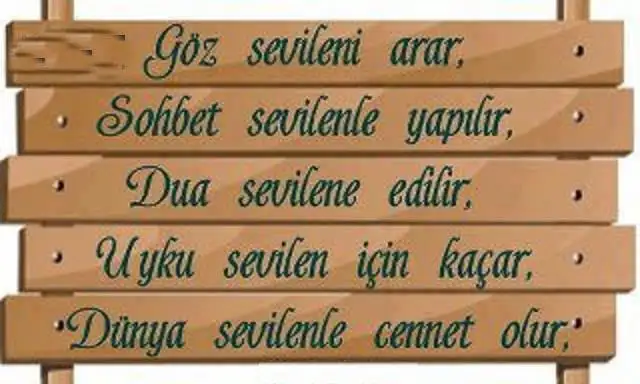 Göz sevileni arar,
Sohbet sevilenle yapılır,
Dua sevilene edilir,
Uyku sevilen için kaçar,
Dünya sevilenle cennet olur,